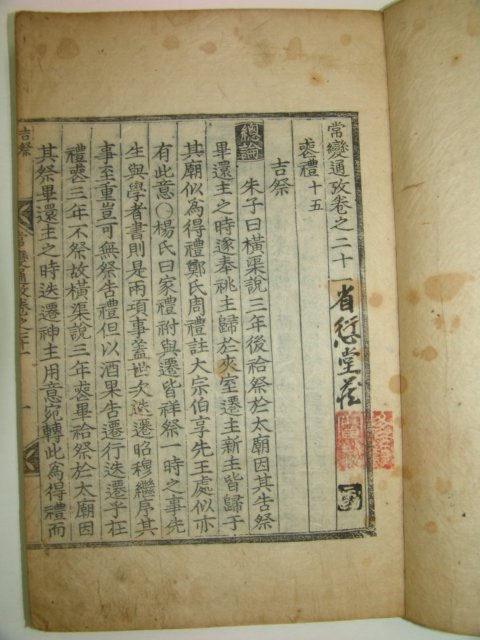 常變通攷卷之二十
省愆堂茂
喪禮十五
吉祭
總論
朱子曰橫渠說三年後祫祭於太廟因其告祭
畢還主之時遂奉祧主歸於夾室遷主新主皆歸于
其廟似為得禮鄭氏周禮註大宗伯享先王處似亦
有此意○楊氏曰家禮祔與遷皆祥祭一時之事先
生與學者書則是兩項事蓋世次迭遷昭穆繼序其
事至重豈可無祭告禮但以酒果告遷行迭遷乎在
禮喪三年不祭故橫渠說三年喪畢祫祭於太廟因
其祭畢還主之時迭遷神主用意宛轉此為得禮而
吉祭
常變通攷卷之二十
一